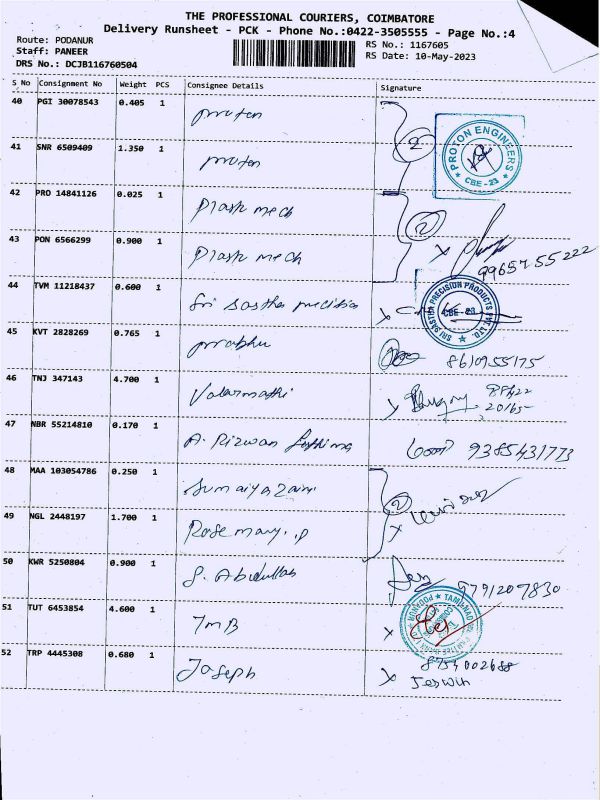 THE PROFESSIONAL COURIERS, COIMBATORE
Delivery Runsheet - PCK - Phone No.:0422-3505555 - Page No.:4
Route: PODANUR
RS No.: 1167605
Staff: PANEER
RS Date: 10-May-2023
DRS No.: DCJB116760504
S No Consignment No Weight PCS Consignee Details Signature
40 PGI 30078543 0.405 1 proton
41 SNR 6509409 1.350 1 proton
2
PROTON ENGINEERS
CBE - 23
42 PRO 14841126 0.025 1 Plastk mech
43 PON 6566299 0.900 1 Plastk mech
2
99657 55 222
44 TVM 11218437 0.600 1 Sri Sastha precision
SRI SASTHA PRECISION PRODUCTS PVT. LTD.
CBE - 23
45 KVT 2828269 0.765 1 prabhu
8610955175
46 TNJ 347143 4.700 1 Valarmathi
47 NBR 55214810 0.170 1 A. Rizwan Fathima
9385431773
48 MAA 103054786 0.250 1 Sumaiya Zain
49 NGL 2448197 1.700 1 Rose mary. p
2
50 KWR 5250804 0.900 1 S. Abidullah
9791207830
51 TUT 6453854 4.600 1 TMB
52 TRP 4445308 0.680 1 Joseph
8754002688
Jerwin